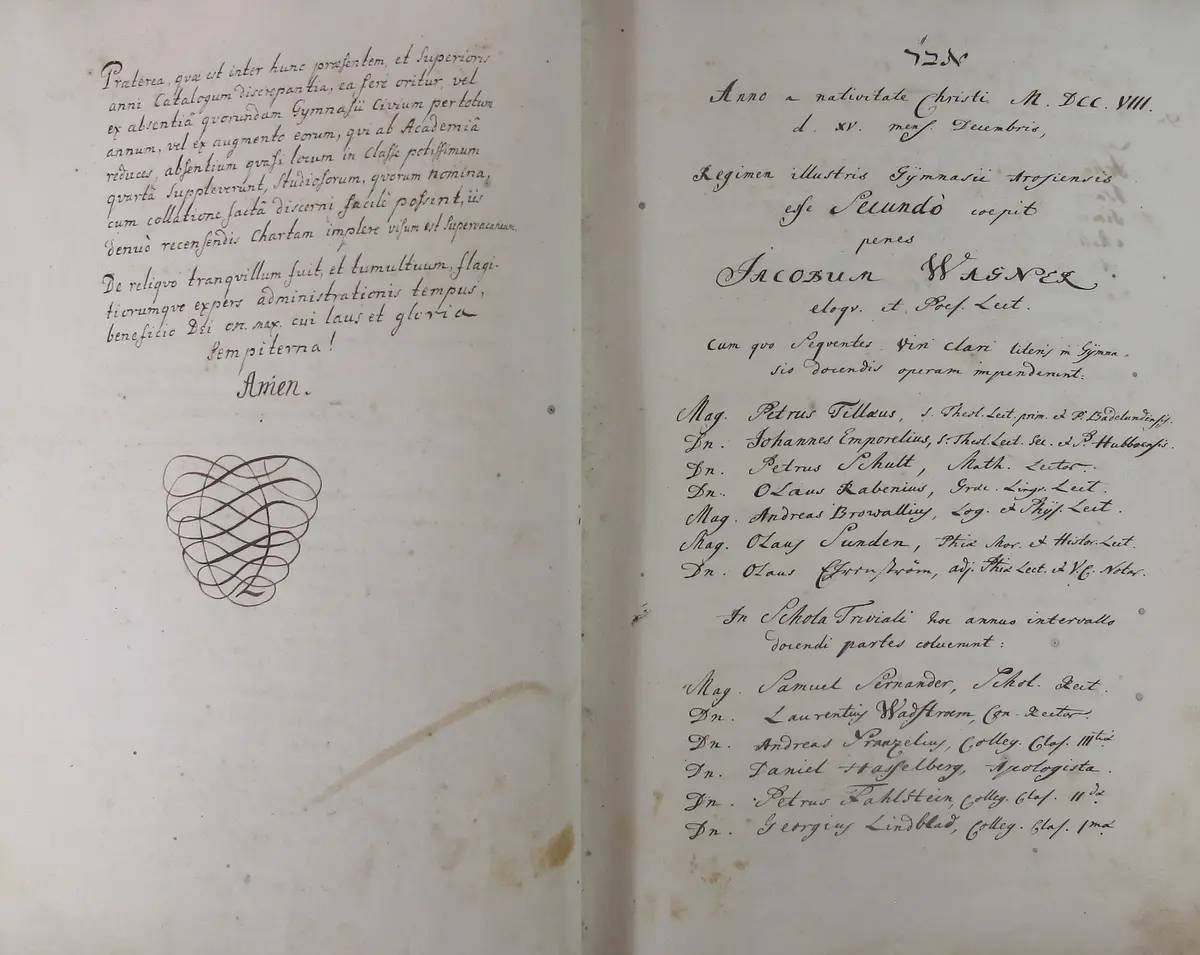 Præterea, quæ est inter hunc præsentem, et Superioris
anni Catalogum discrepantia, ea fere oritur, vel
ex absentiâ quorundam Gymnasii Civium per totum
annum, vel ex augmento eorum, qui ab Academiâ
reduces, absentium quasi locum in Classe potissimum
quartâ Suppleverunt, Studiosorum, quorum nomina,
cum collatione factâ discerni facili possint, iis
denuò recensendis Chartam implere visum est Supervacaneum.
De reliquo tranquillum fuit, et tumultuum, flagi-
tiorumqve expers administrationis tempus,
beneficio Dei op. max. cui laus et gloria
Sempiterna!
Amen.
Anno a nativitate Christi M. DCC. VIII.
d. XV. mens. Decembris,
Regimen illustris Gÿmnasii Arosiensis
esse Secundò coepit
penes
JACOBUM WAGNER
eloqv. et Poes. Lect.
Cum quo Seqventes Viri Clari literis in Gÿmna-
sio docendis operam impenderunt:
Mag. Petrus Tillæus, S. Theol. Lect. prim. et P. Badelundensis.
Dn. Johannes Emporelius, S. Theol. Lect. Sec. et P. Hubboensis.
Dn. Petrus Schult, Math. Lector.
Dn. Olaus Rabenius, Græc. Lingv. Lect.
Mag. Andreas Browallius, Log. et Phÿs. Lect.
Mag. Olaus Sunden, Phiæ Mor. et Histor. Lect.
Dn. Olaus Ehrenström, adj. Phiæ Lect. et V. C. Notar.
In Schola Triviali hoc annuo intervallo
docendi partes coluerunt:
Mag. Samuel Sernander, Schol. Rect.
Dn. Laurentius Wadstroem, Con-Rector.
Dn. Andreas Colleg. Clas. IIItiæ
Dn. Daniel Hasselberg, Apologista.
Dn. Petrus Fahlstein, Colleg. Clas. IIdæ
Dn. Georgius Lindblad, Colleg. Clas. Imæ